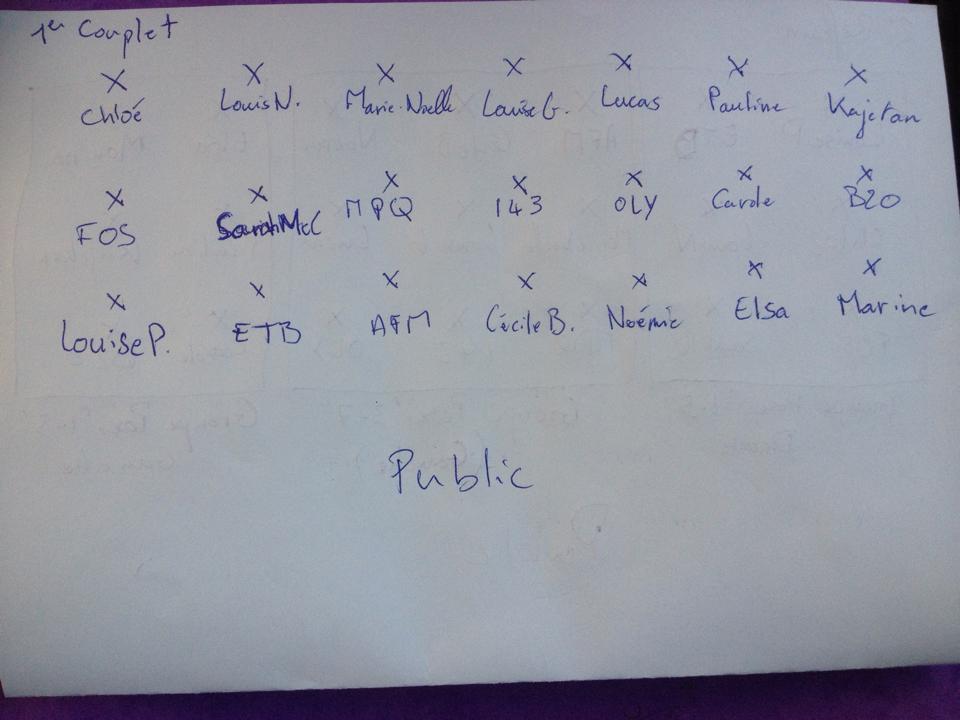 1er Couplet
X X X X X X X
Chloé Louis N. Marie-Noëlle Louise G. Lucas Pauline Kajetan
X X X X X X X
FOS Sarah McC MPQ 143 OLY Carole B20
X X X X X X X
Louise P. ETB AFM Cécile B. Noémie Elsa Marine
Public